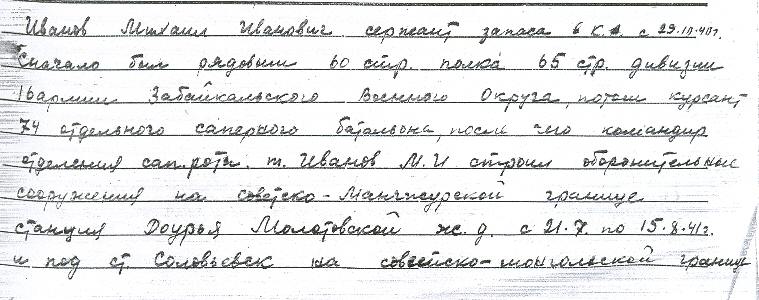 Иванов Михаил Иванович сержант запаса в К.А. с 29.10.40г.
Сначало был рядовым 60 стр. полка 65 стр. дивизии
16армии Забайкальского Военного Округа, потом курсант
74 отдельного саперного батальона, после чего командир
отделения сап.роты. т. Иванов М.И строил оборонительные
сооружения на советско-Манчжурской границе
станция Доурья Молотовской ж. д. с 21.7. по 15.8.41г.
и под ст. Соловьевск на советско-монгольской границе